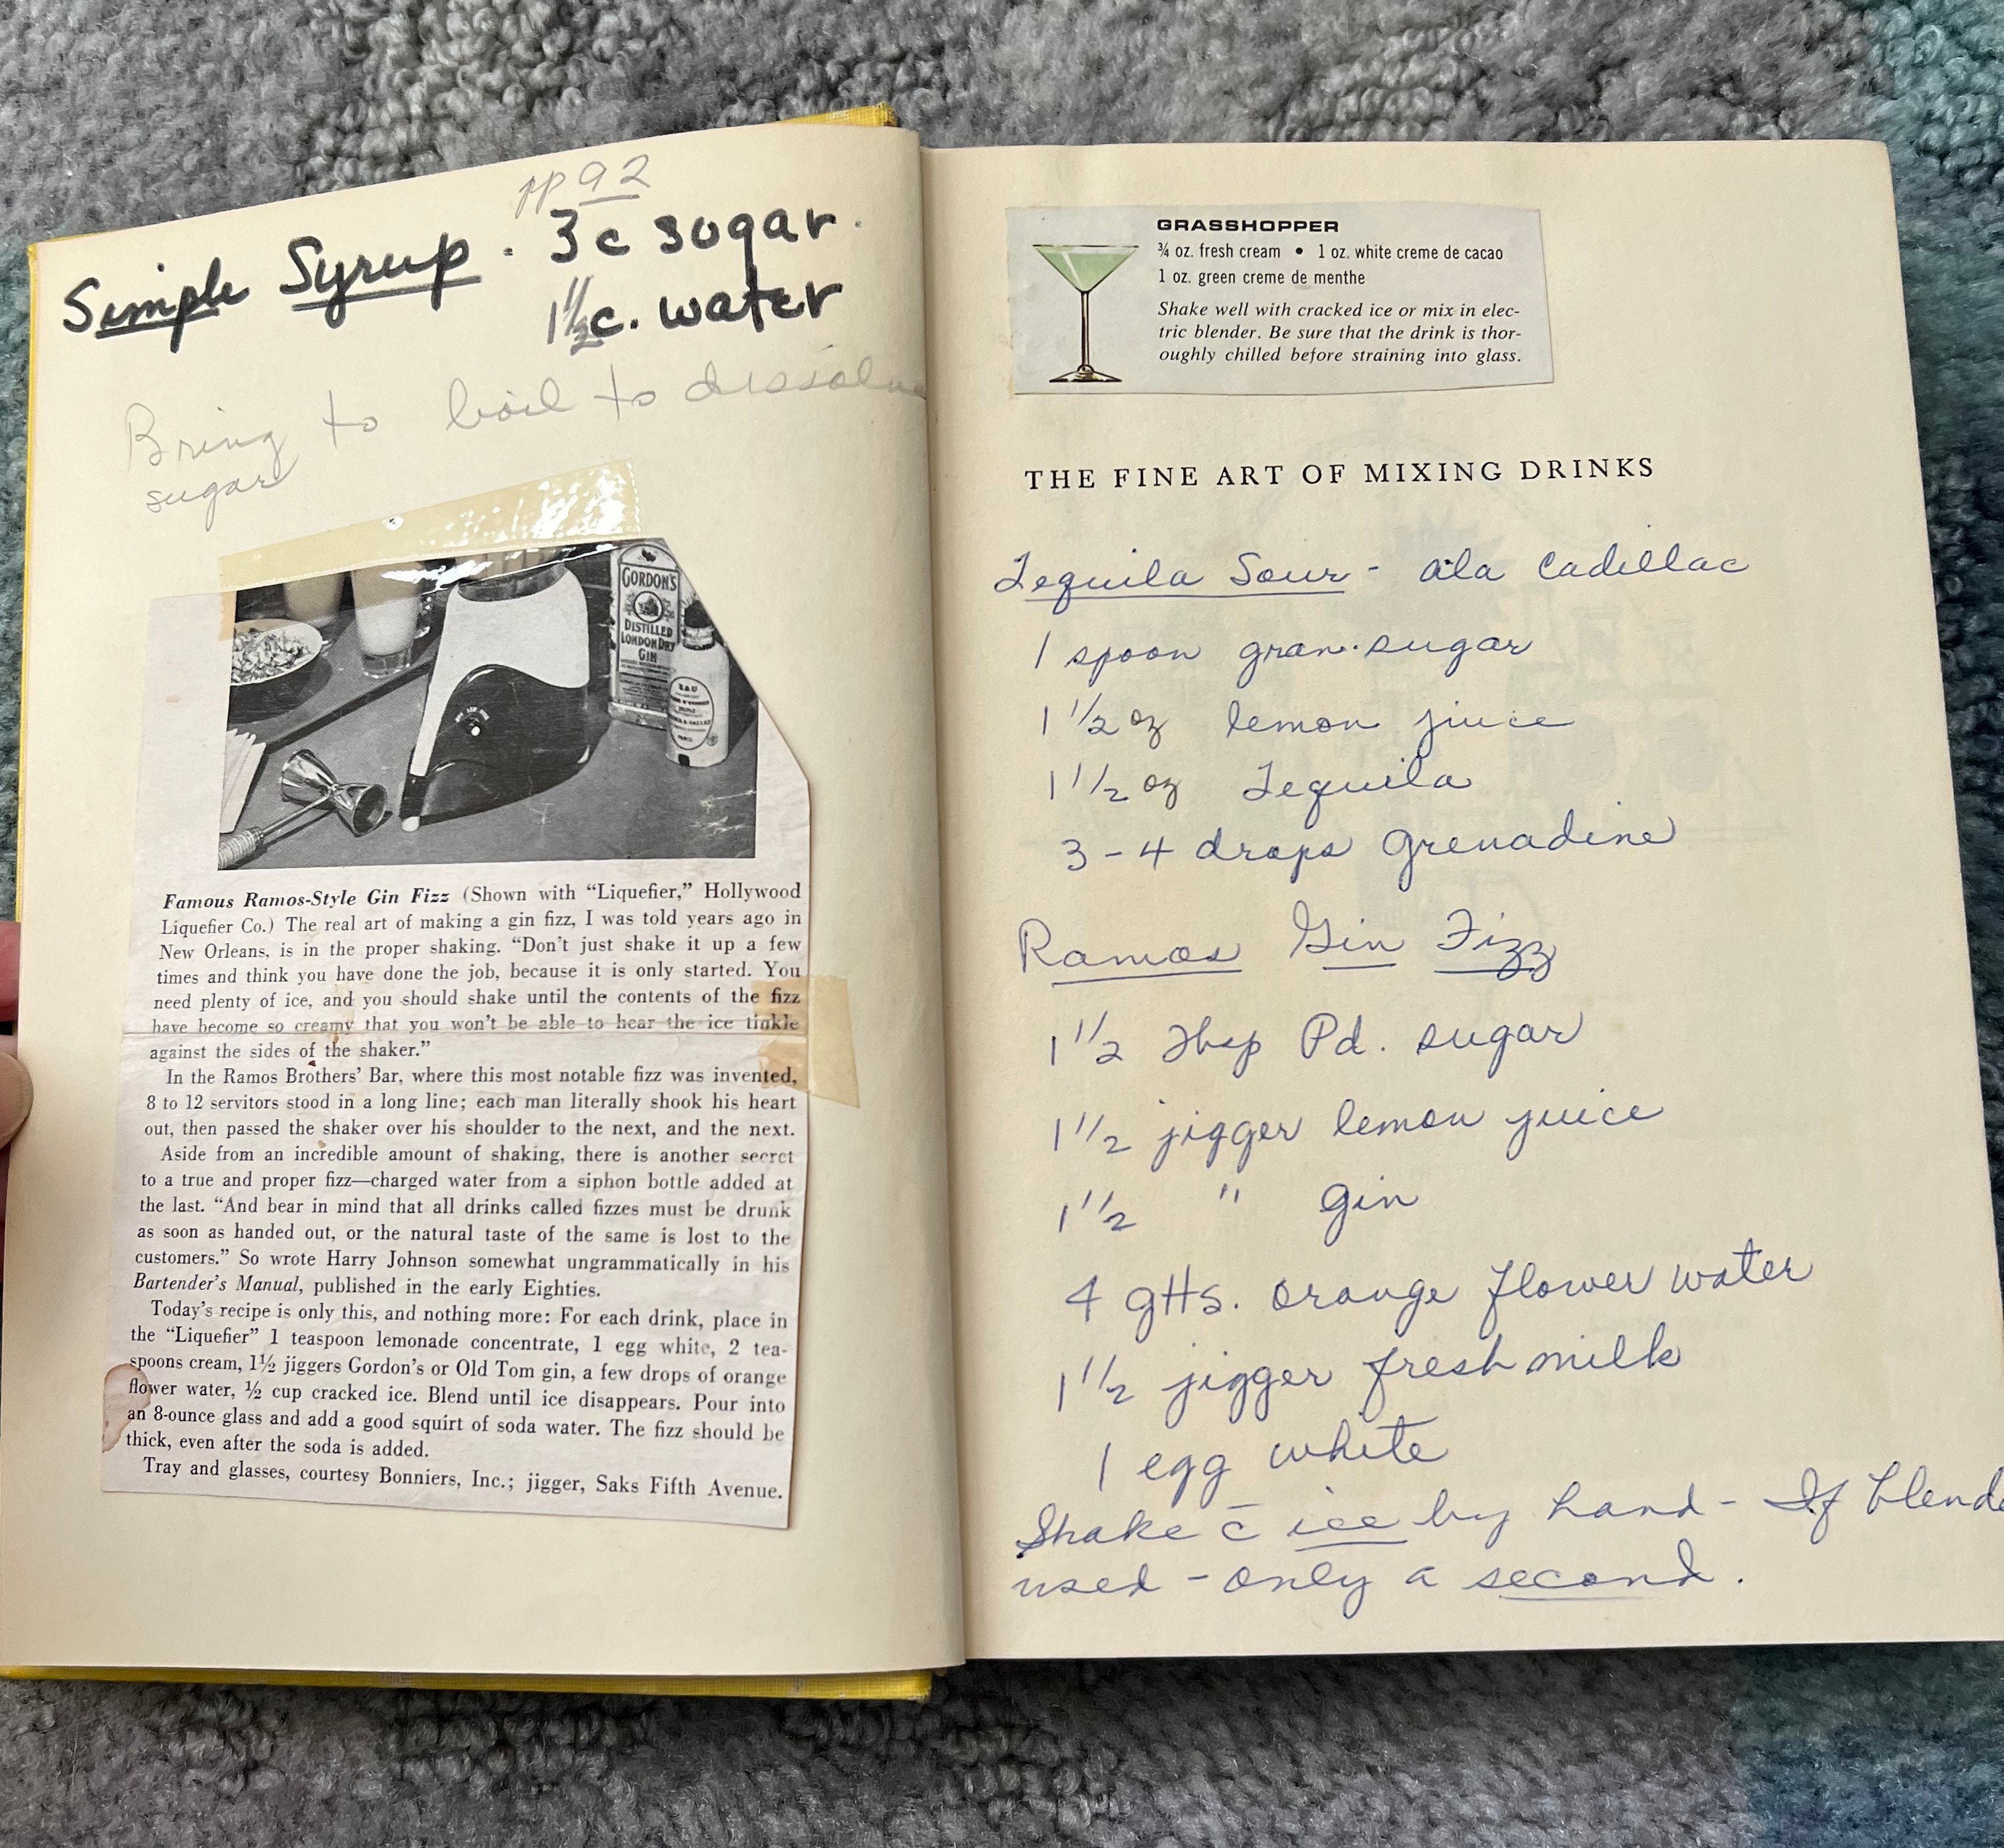 pp 92
Simple Syrup . 3c sugar.
1 1/2 c. water
Bring to boil to dissolve
sugar
GORDON'S
DISTILLED
LONDON DRY
GIN
EAU
Famous Ramos-Style Gin Fizz (Shown with “Liquefier,” Hollywood
Liquefier Co.) The real art of making a gin fizz, I was told years ago in
New Orleans, is in the proper shaking. “Don't just shake it up a few
times and think you have done the job, because it is only started. You
need plenty of ice, and you should shake until the contents of the fizz
have become so creamy that you won't be able to hear the ice tinkle
against the sides of the shaker.”
In the Ramos Brothers' Bar, where this most notable fizz was invented,
8 to 12 servitors stood in a long line; each man literally shook his heart
out, then passed the shaker over his shoulder to the next, and the next.
Aside from an incredible amount of shaking, there is another secret
to a true and proper fizz—charged water from a siphon bottle added at
the last. “And bear in mind that all drinks called fizzes must be drunk
as soon as handed out, or the natural taste of the same is lost to the
customers.” So wrote Harry Johnson somewhat ungrammatically in his
Bartender's Manual, published in the early Eighties.
Today's recipe is only this, and nothing more: For each drink, place in
the “Liquefier” 1 teaspoon lemonade concentrate, 1 egg white, 2 tea-
spoons cream, 1½ jiggers Gordon's or Old Tom gin, a few drops of orange
flower water, ½ cup cracked ice. Blend until ice disappears. Pour into
an 8-ounce glass and add a good squirt of soda water. The fizz should be
thick, even after the soda is added.
Tray and glasses, courtesy Bonniers, Inc.; jigger, Saks Fifth Avenue.
GRASSHOPPER
¾ oz. fresh cream • 1 oz. white creme de cacao
1 oz. green creme de menthe
Shake well with cracked ice or mix in elec-
tric blender. Be sure that the drink is thor-
oughly chilled before straining into glass.
THE FINE ART OF MIXING DRINKS
Tequila Sour - ala Cadillac
1 spoon gran. sugar
1 1/2 oz lemon juice
1 1/2 oz Tequila
3-4 drops Grenadine
Ramos Gin Fizz
1 1/2 Tbsp Pd. sugar
1 1/2 jigger lemon juice
1 1/2 " Gin
4 gtts. orange flower water
1 1/2 jigger fresh milk
1 egg white
Shake c̄ ice by hand - If blende
used - only a second.